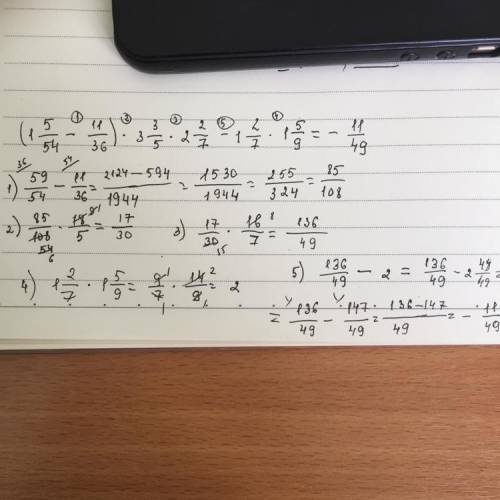 (1 5/54 - 11/36) · 3 3/5 · 2 2/7 - 1 2/7 · 1 5/9 = - 11/49
1) 59/54 - 11/36 = 2124-594/1944 = 1530/1944 = 255/324 = 85/108
2) 85/108 · 18/5 = 17/30 3) 17/30 · 16/7 = 136/49
4) 1 2/7 · 1 5/9 = 9/7 · 14/9 = 2 5) 136/49 - 2 = 136/49 - 2 49/49 =
= 136/49 - 147/49 = 136-147/49 = - 11/49